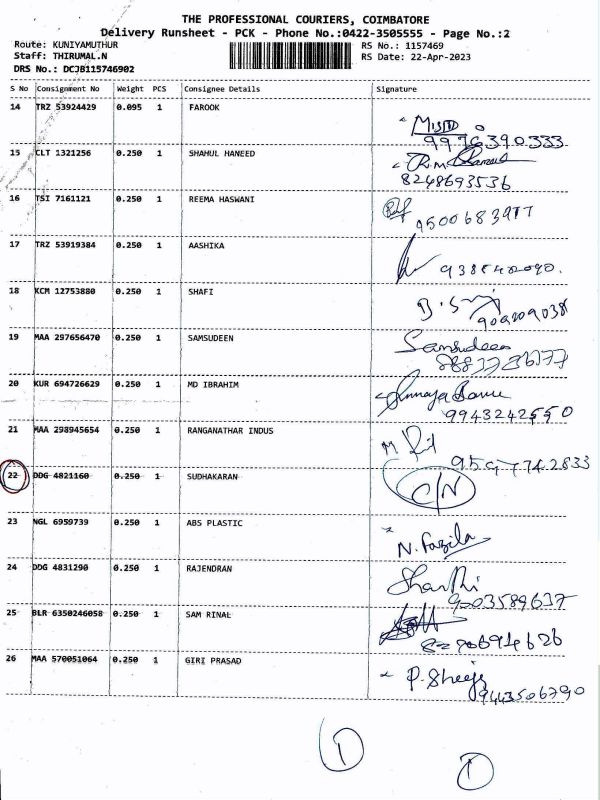 THE PROFESSIONAL COURIERS, COIMBATORE
Delivery Runsheet - PCK - Phone No.:0422-3505555 - Page No.:2
Route: KUNIYAMUTHUR RS No.: 1157469
Staff: THIRUMAL.N RS Date: 22-Apr-2023
DRS No.: DCJB115746902
S No Consignment No Weight PCS Consignee Details Signature
14 TRZ 53924429 0.095 1 FAROOK
9976390333
15 CLT 1321256 0.250 1 SHAHUL HANEED
8248693536
16 TSI 7161121 0.250 1 REEMA HASWANI
9500683977
17 TRZ 53919384 0.250 1 AASHIKA
18 KCM 12753880 0.250 1 SHAFI
19 MAA 297656470 0.250 1 SAMSUDEEN
Samsudeen
20 KUR 694726629 0.250 1 MD IBRAHIM
9943242550
21 MAA 298945654 0.250 1 RANGANATHAR INDUS
9597742833
22 DDG 4821160 0.250 1 SUDHAKARAN
C/N
23 NGL 6959739 0.250 1 ABS PLASTIC
N. Fazila
24 DDG 4831290 0.250 1 RAJENDRAN
Sharthi
9003589637
25 BLR 6350246058 0.250 1 SAM RINAL
26 MAA 570051064 0.250 1 GIRI PRASAD
P. Sheeja
9443506790
1
1